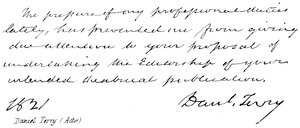 The pressure of my professional duties
lately, has prevented me from giving
due attention to your proposal of
undertaking the Editorship of your
intended theatrical publication.
1821 Danl. Terry
Daniel Terry (Actor)